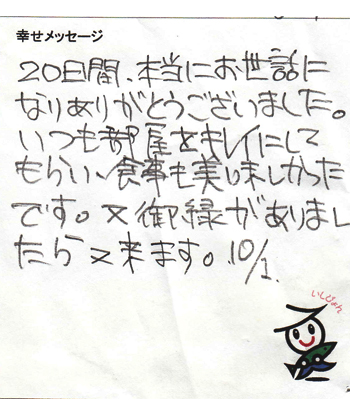 幸せメッセージ
20日間、本当にお世話に
なりありがとうございました。
いつも部屋をキレイにして
もらい、食事も美味しかった
です。又御縁がありまし
たら又来ます。10/1.
いしぴょん